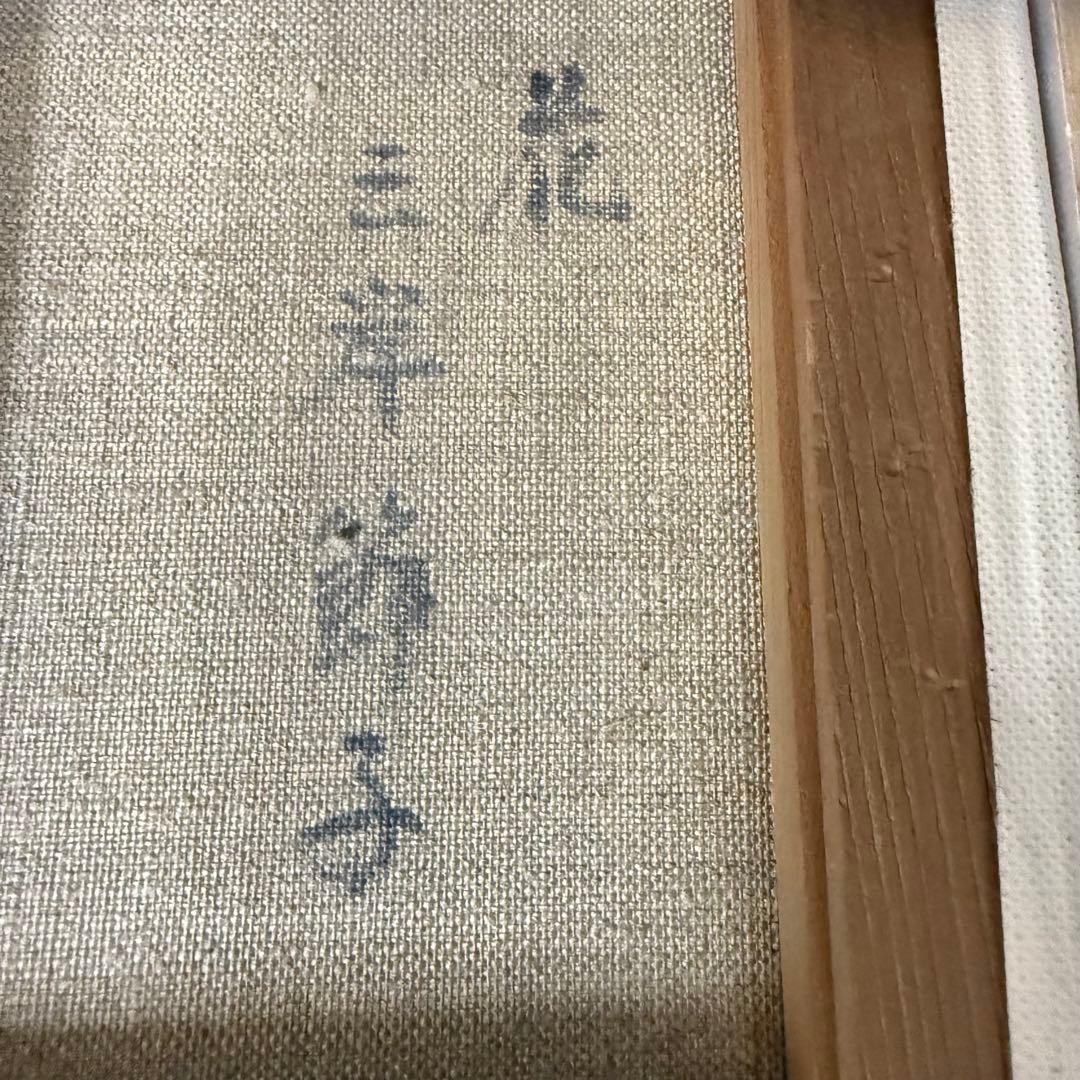 花
三岸節子